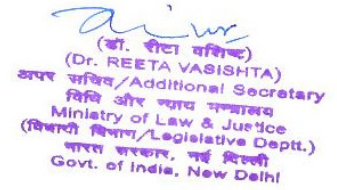 (डॉ. रीटा वशिष्ट)
(Dr. REETA VASISHTA)
अपर सचिव/Additional Secretary
विधि और न्याय मन्त्रालय
Ministry of Law & Justice
(विधायी विभाग/Legislative Deptt.)
भारत सरकार, नई दिल्ली
Govt. of India, New Delhi